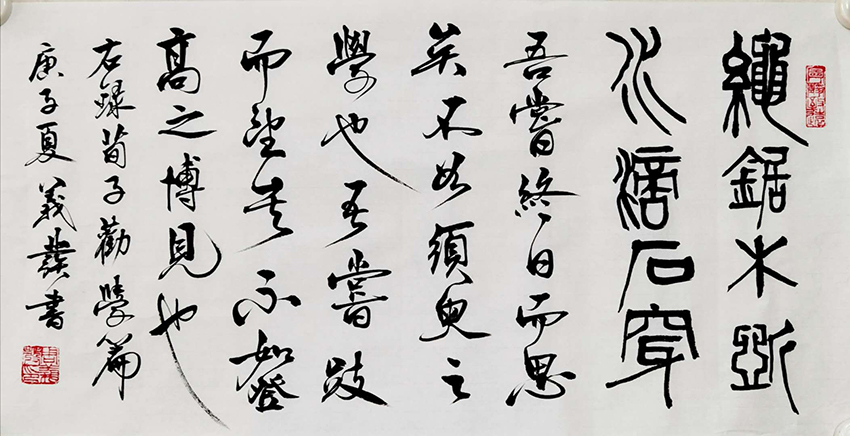 繩鋸木斷
水滴石穿
吾嘗終日而思
矣不如須臾之
學也吾嘗跂
而望矣不如登
高之博見也
右録荀子勸學篇
庚子夏義發書